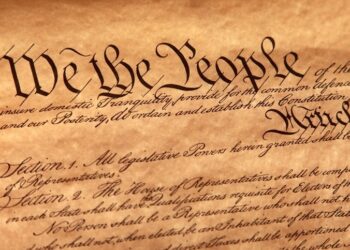 We the People of the
insure domestic Tranquility, provide for the common defence
and our Posterity, do ordain and establish this Constitution
Artic
Section. 1. All legislative Powers herein granted shall be
of Representatives.
Section. 2. The House of Representatives shall be comp
in each State shall have Qualifications requisite for Electors of the
No Person shall be a Representative who shall not ha
who shall not, when elected, be an Inhabitant of that Stat
direct Taxes shall be apportioned